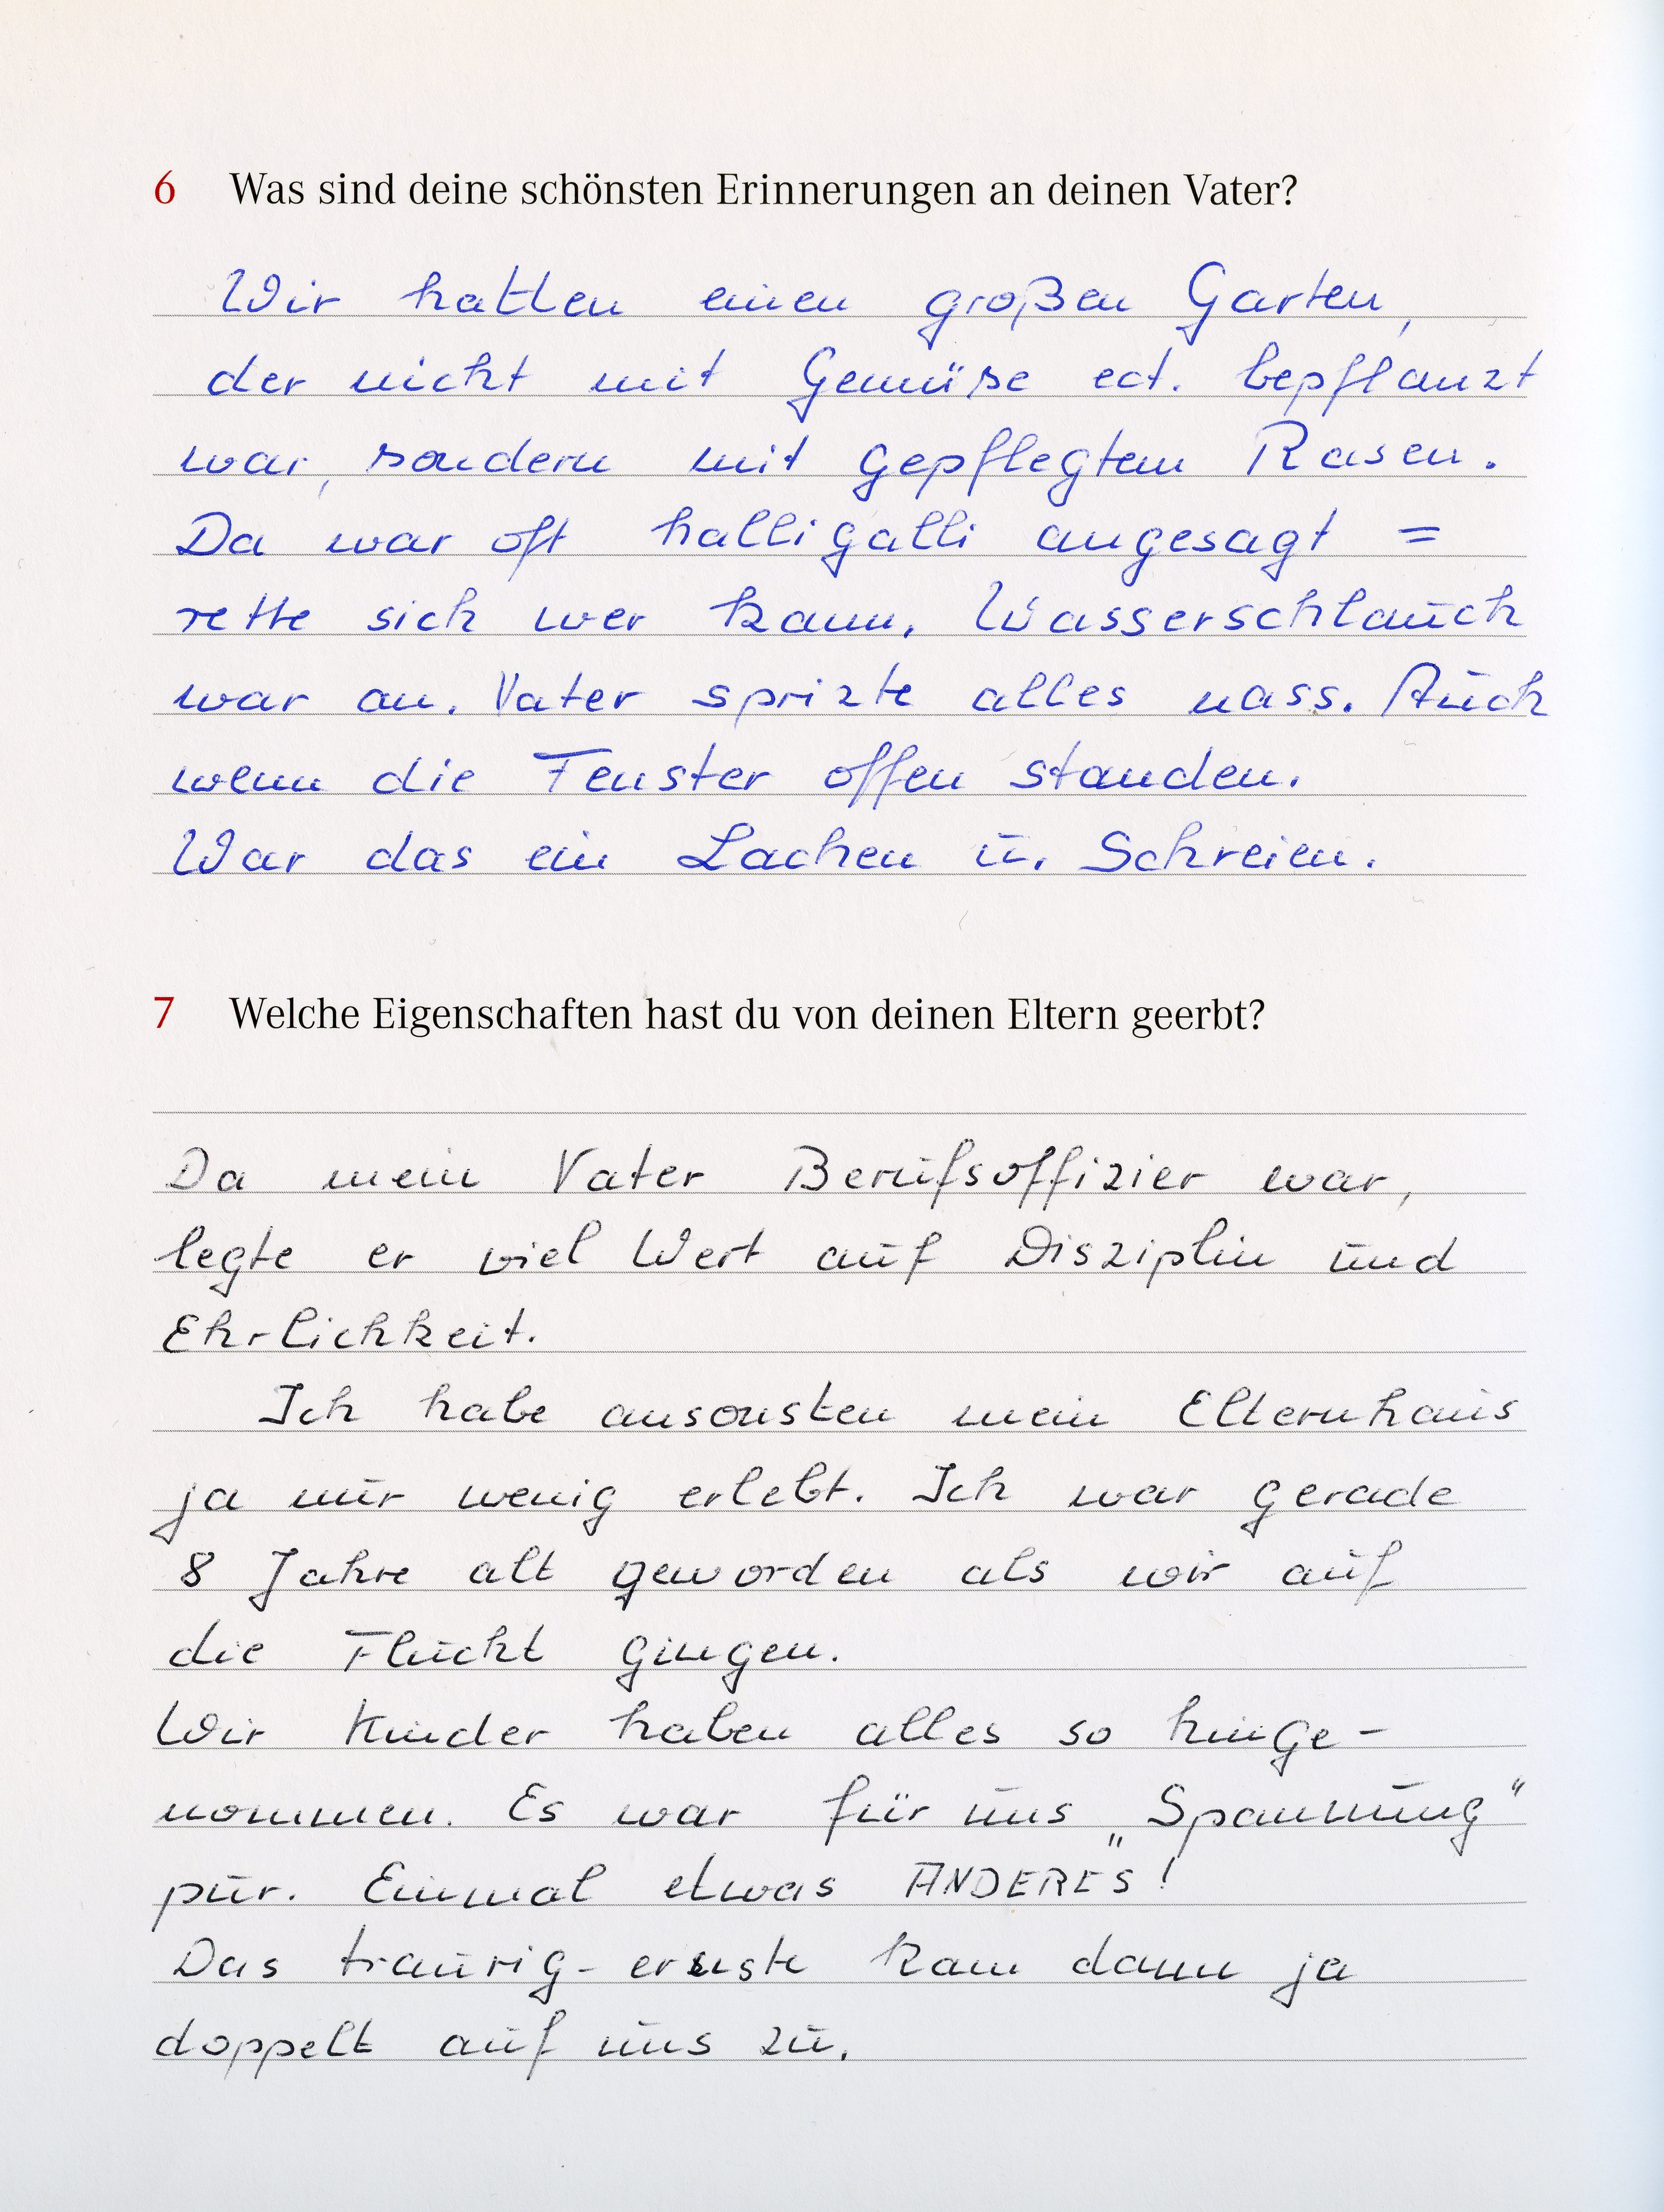 6 Was sind deine schönsten Erinnerungen an deinen Vater?
Wir hatten einen großen Garten,
der nicht mit Gemüse ect. bepflanzt
war, sondern mit gepflegtem Rasen.
Da war oft halligalli angesagt =
rette sich wer kann. Wasserschlauch
war an. Vater sprizte alles nass. Auch
wenn die Fenster offen standen.
War das ein Lachen u. Schreien.
7 Welche Eigenschaften hast du von deinen Eltern geerbt?
Da mein Vater Berufsoffizier war,
legte er viel Wert auf Disziplin und
Ehrlichkeit.
Ich habe ansonsten mein Elternhaus
ja nur wenig erlebt. Ich war gerade
8 Jahre alt geworden als wir auf
die Flucht gingen.
Wir Kinder haben alles so hinge-
nommen. Es war für uns „Spannung“
pur. Einmal etwas ANDERES!
Das traurig-ernste kam dann ja
doppelt auf uns zu.